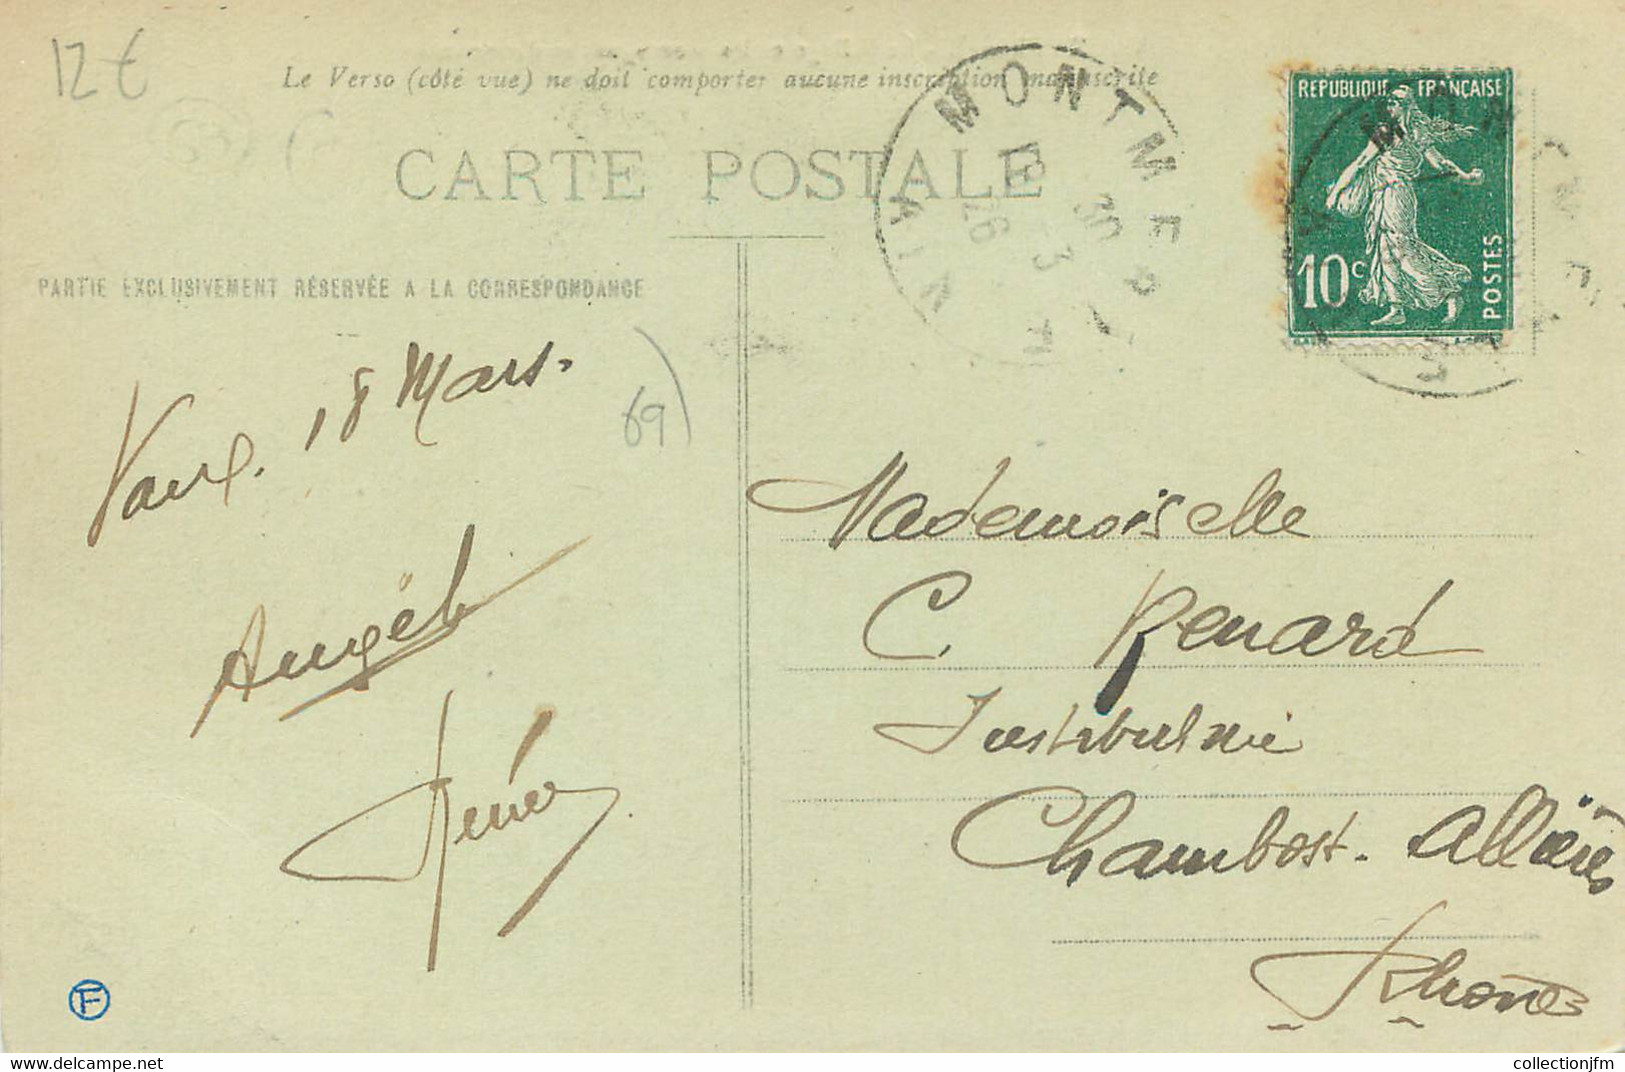 12€
Le Verso (côté vue) ne doit comporter aucune inscription manuscrite
CARTE POSTALE
MONTMERLE
AIN
18
30
3
26
REPUBLIQUE FRANÇAISE
10c
POSTES
PARTIE EXCLUSIVEMENT RÉSERVÉE A LA CORRESPONDANCE
Vaux. 18 Mars.
69)
Angèle
René
Mademoiselle
C. Renard
Institutrice
Chambost. Allières
Rhône
F
collectionjfm